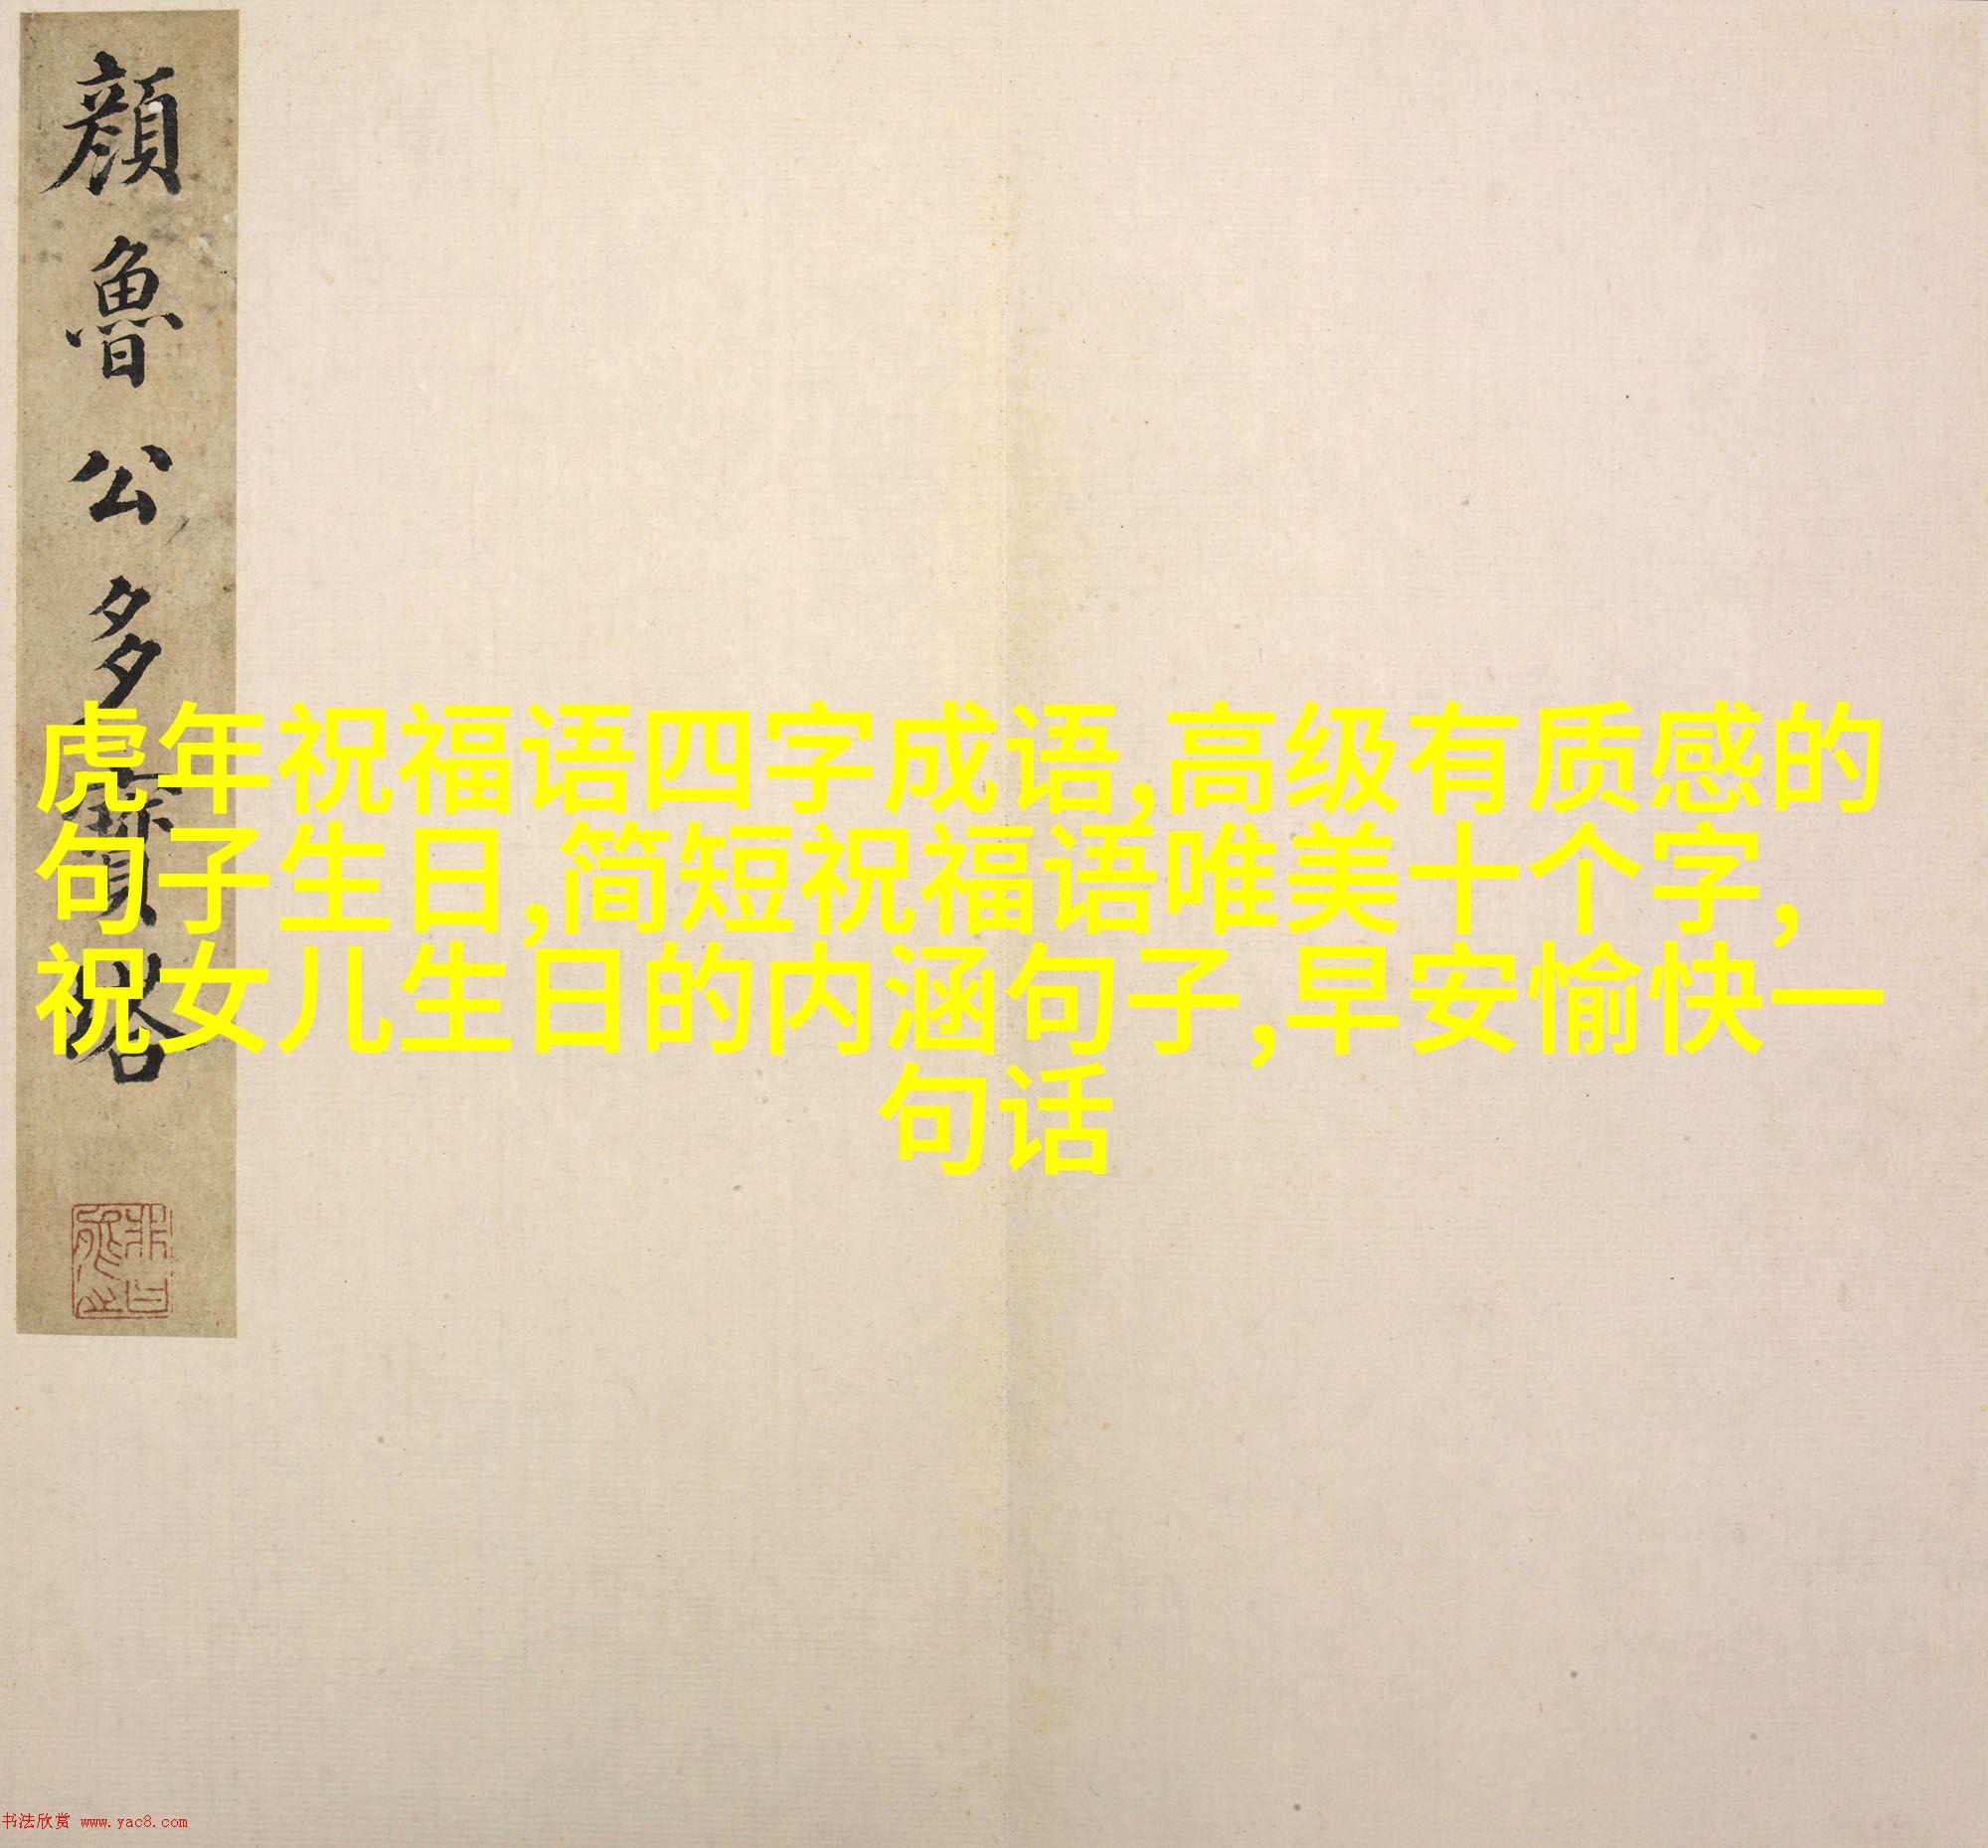 顔魯公多寶塔
虎年祝福语四字成语,高级有质感的
句子生日,简短祝福语唯美十个字,
祝女儿生日的内涵句子,早安愉快一
句话
书法欣赏 www.yac8.com